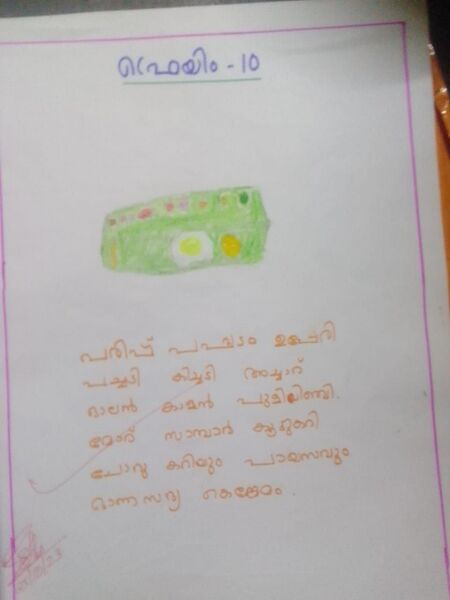 ഫ്രെയിം - 10
പരിപ്പ് പപ്പടം ഉപ്പേരി
പച്ചടി കിച്ചടി അച്ചാറ്
കാളൻ പുളിയിഞ്ചി.
മോര് സാമ്പാർ കൂട്ടുകറി
ചോറു കറിയും പായസവും
ഓണസദ്യ കെങ്കേമം.